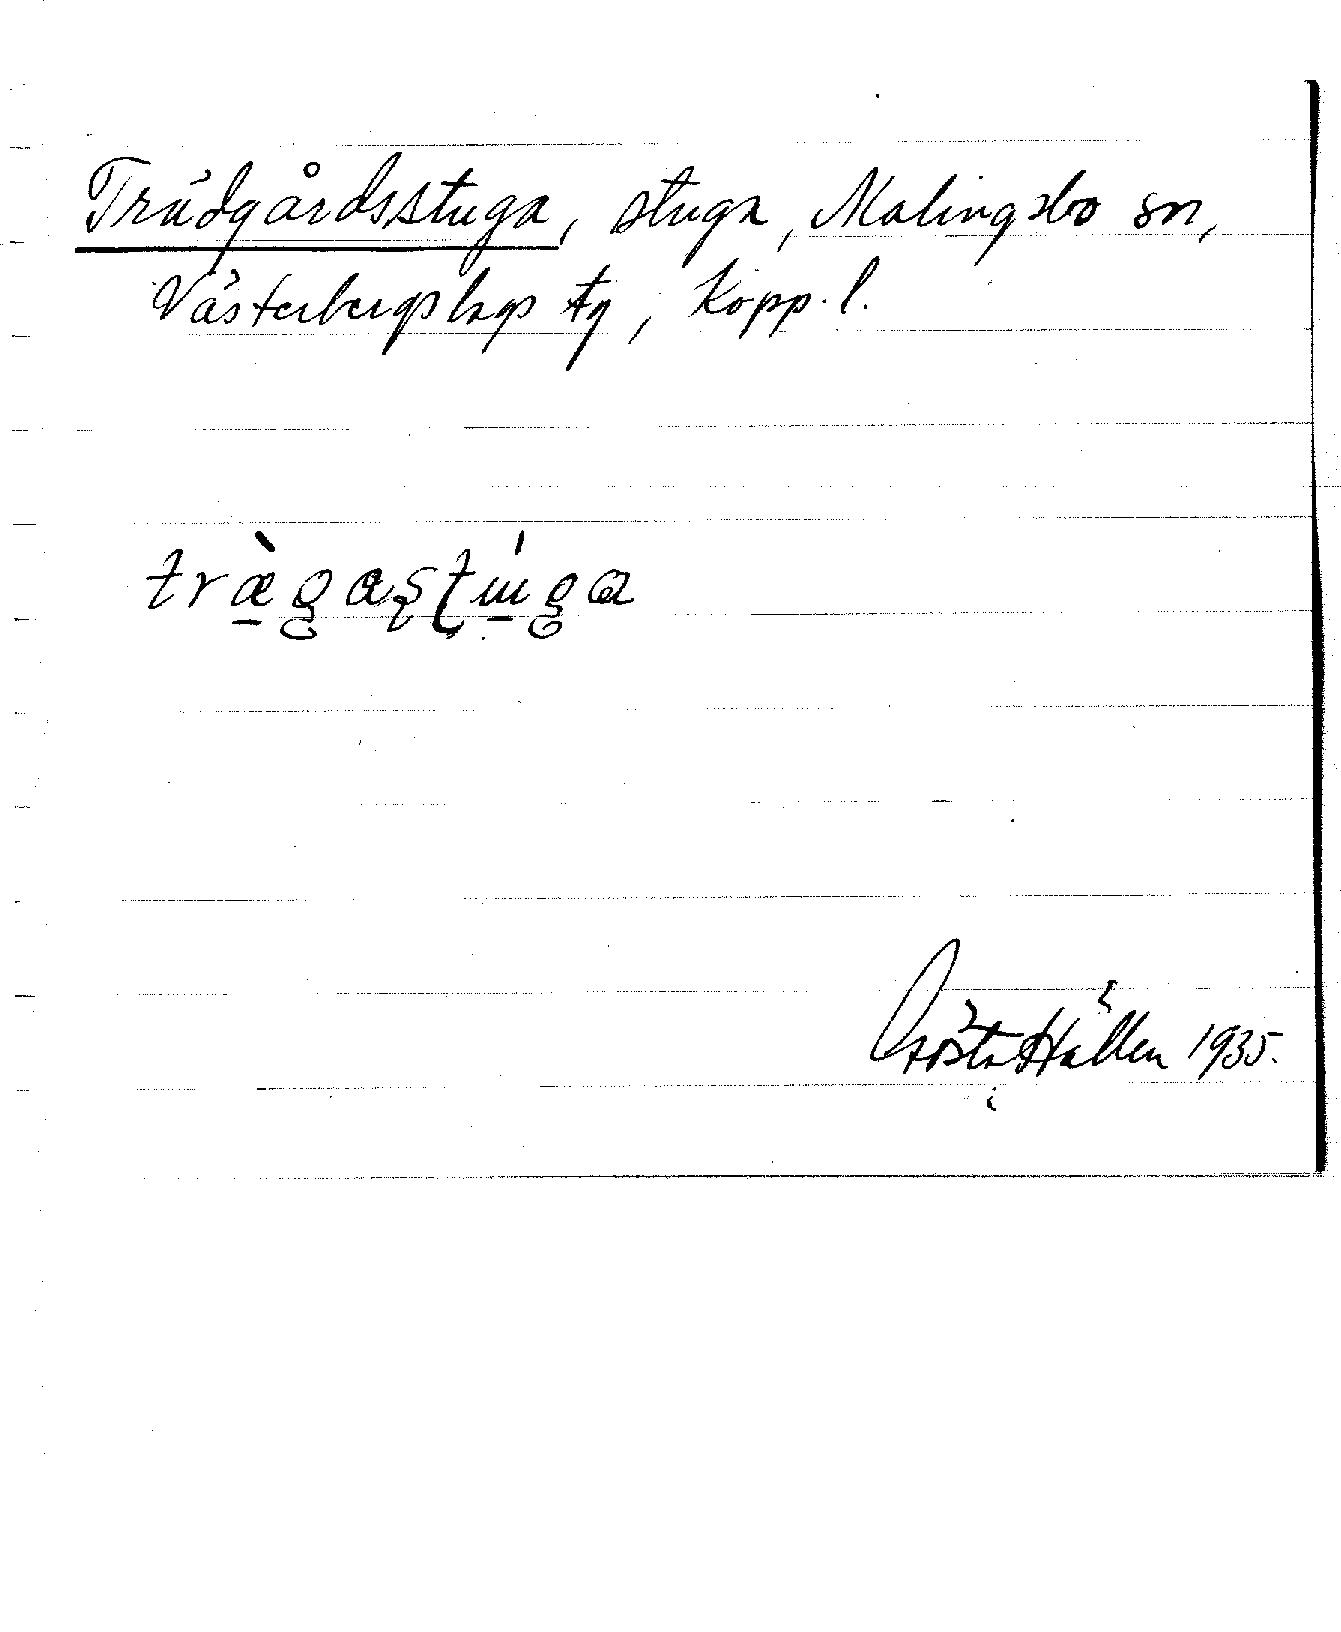 Trädgårdsstuga, stuga, Malingsbo sn,
Västerbergslags tg, Kopp. l.
træ̀gaʂʈúga
Gösta Hällen 1935.